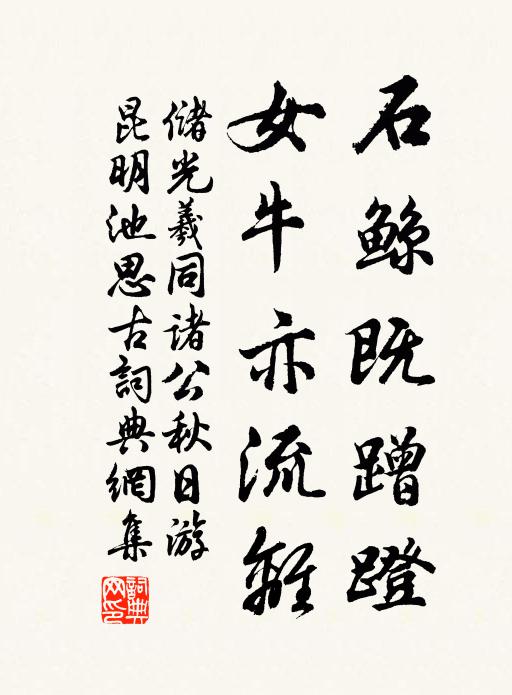 石鯨既蹭蹬
女牛亦流離
儲光羲同諸公秋日游
昆明池思古詞典網集
詞典
网印